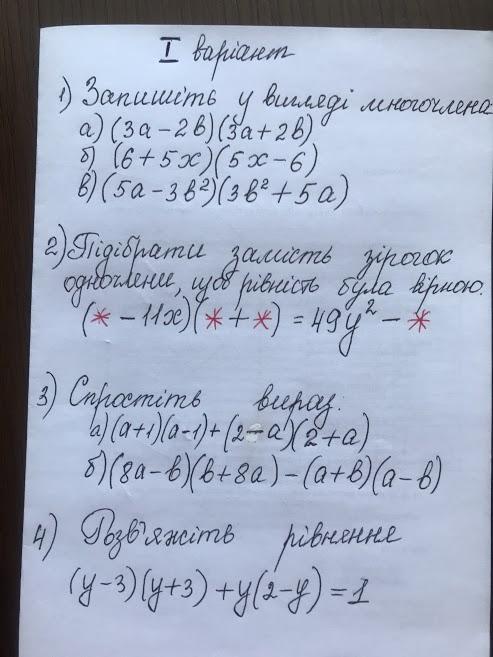 I варіант
1) Запишіть у вигляді многочлена
а) (3a - 2b)(3a + 2b)
б) (6 + 5x)(5x - 6)
в) (5a - 3b²)(3b² + 5a)
2) Підібрати замість зірочок
одночлени, щоб рівність була вірною.
(* - 11x)(* + *) = 49y² - *
3) Спростіть вираз:
а) (a+1)(a-1) + (2-a)(2+a)
б) (8a - b)(b + 8a) - (a+b)(a-b)
4) Розв'яжіть рівняння
(y-3)(y+3) + y(2-y) = 1